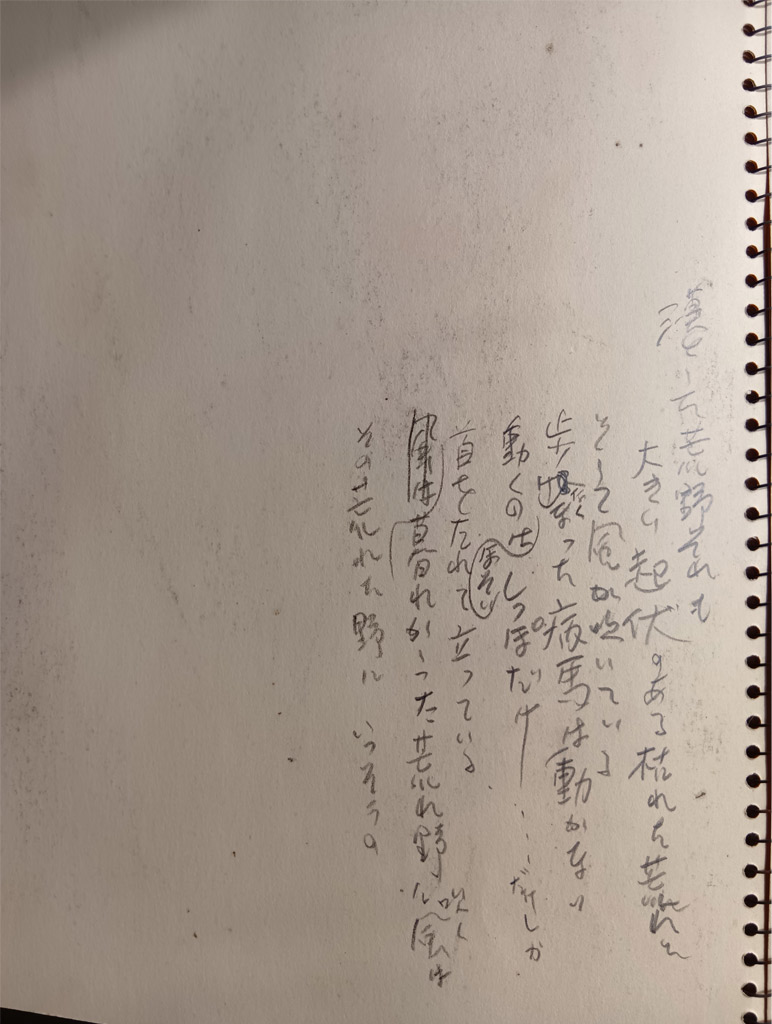 漠とした荒れ野それも
大きい起伏のある枯れた荒れた
そして風が吹いている
歩なくなった病馬は動かない
動くのは しっぽだけ……だけしか
首をたれて立っている
風は暮れかかった荒れ野に吹く風は
その荒れた野に いっそうの